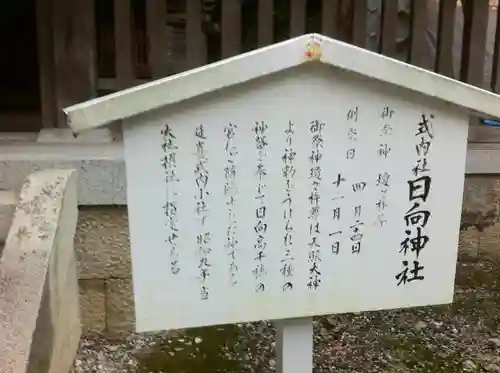 式内社 日向神社
御祭神 瓊々杵尊
例祭日 四月二四日
十一月一日
御祭神瓊々杵尊は天照大神
より神勅をうけられ三種の
神器を奉じて日向高千穂の
宮に御降臨された神であり
延喜式内小社で昭和九年当
大社摂社に指定せらる